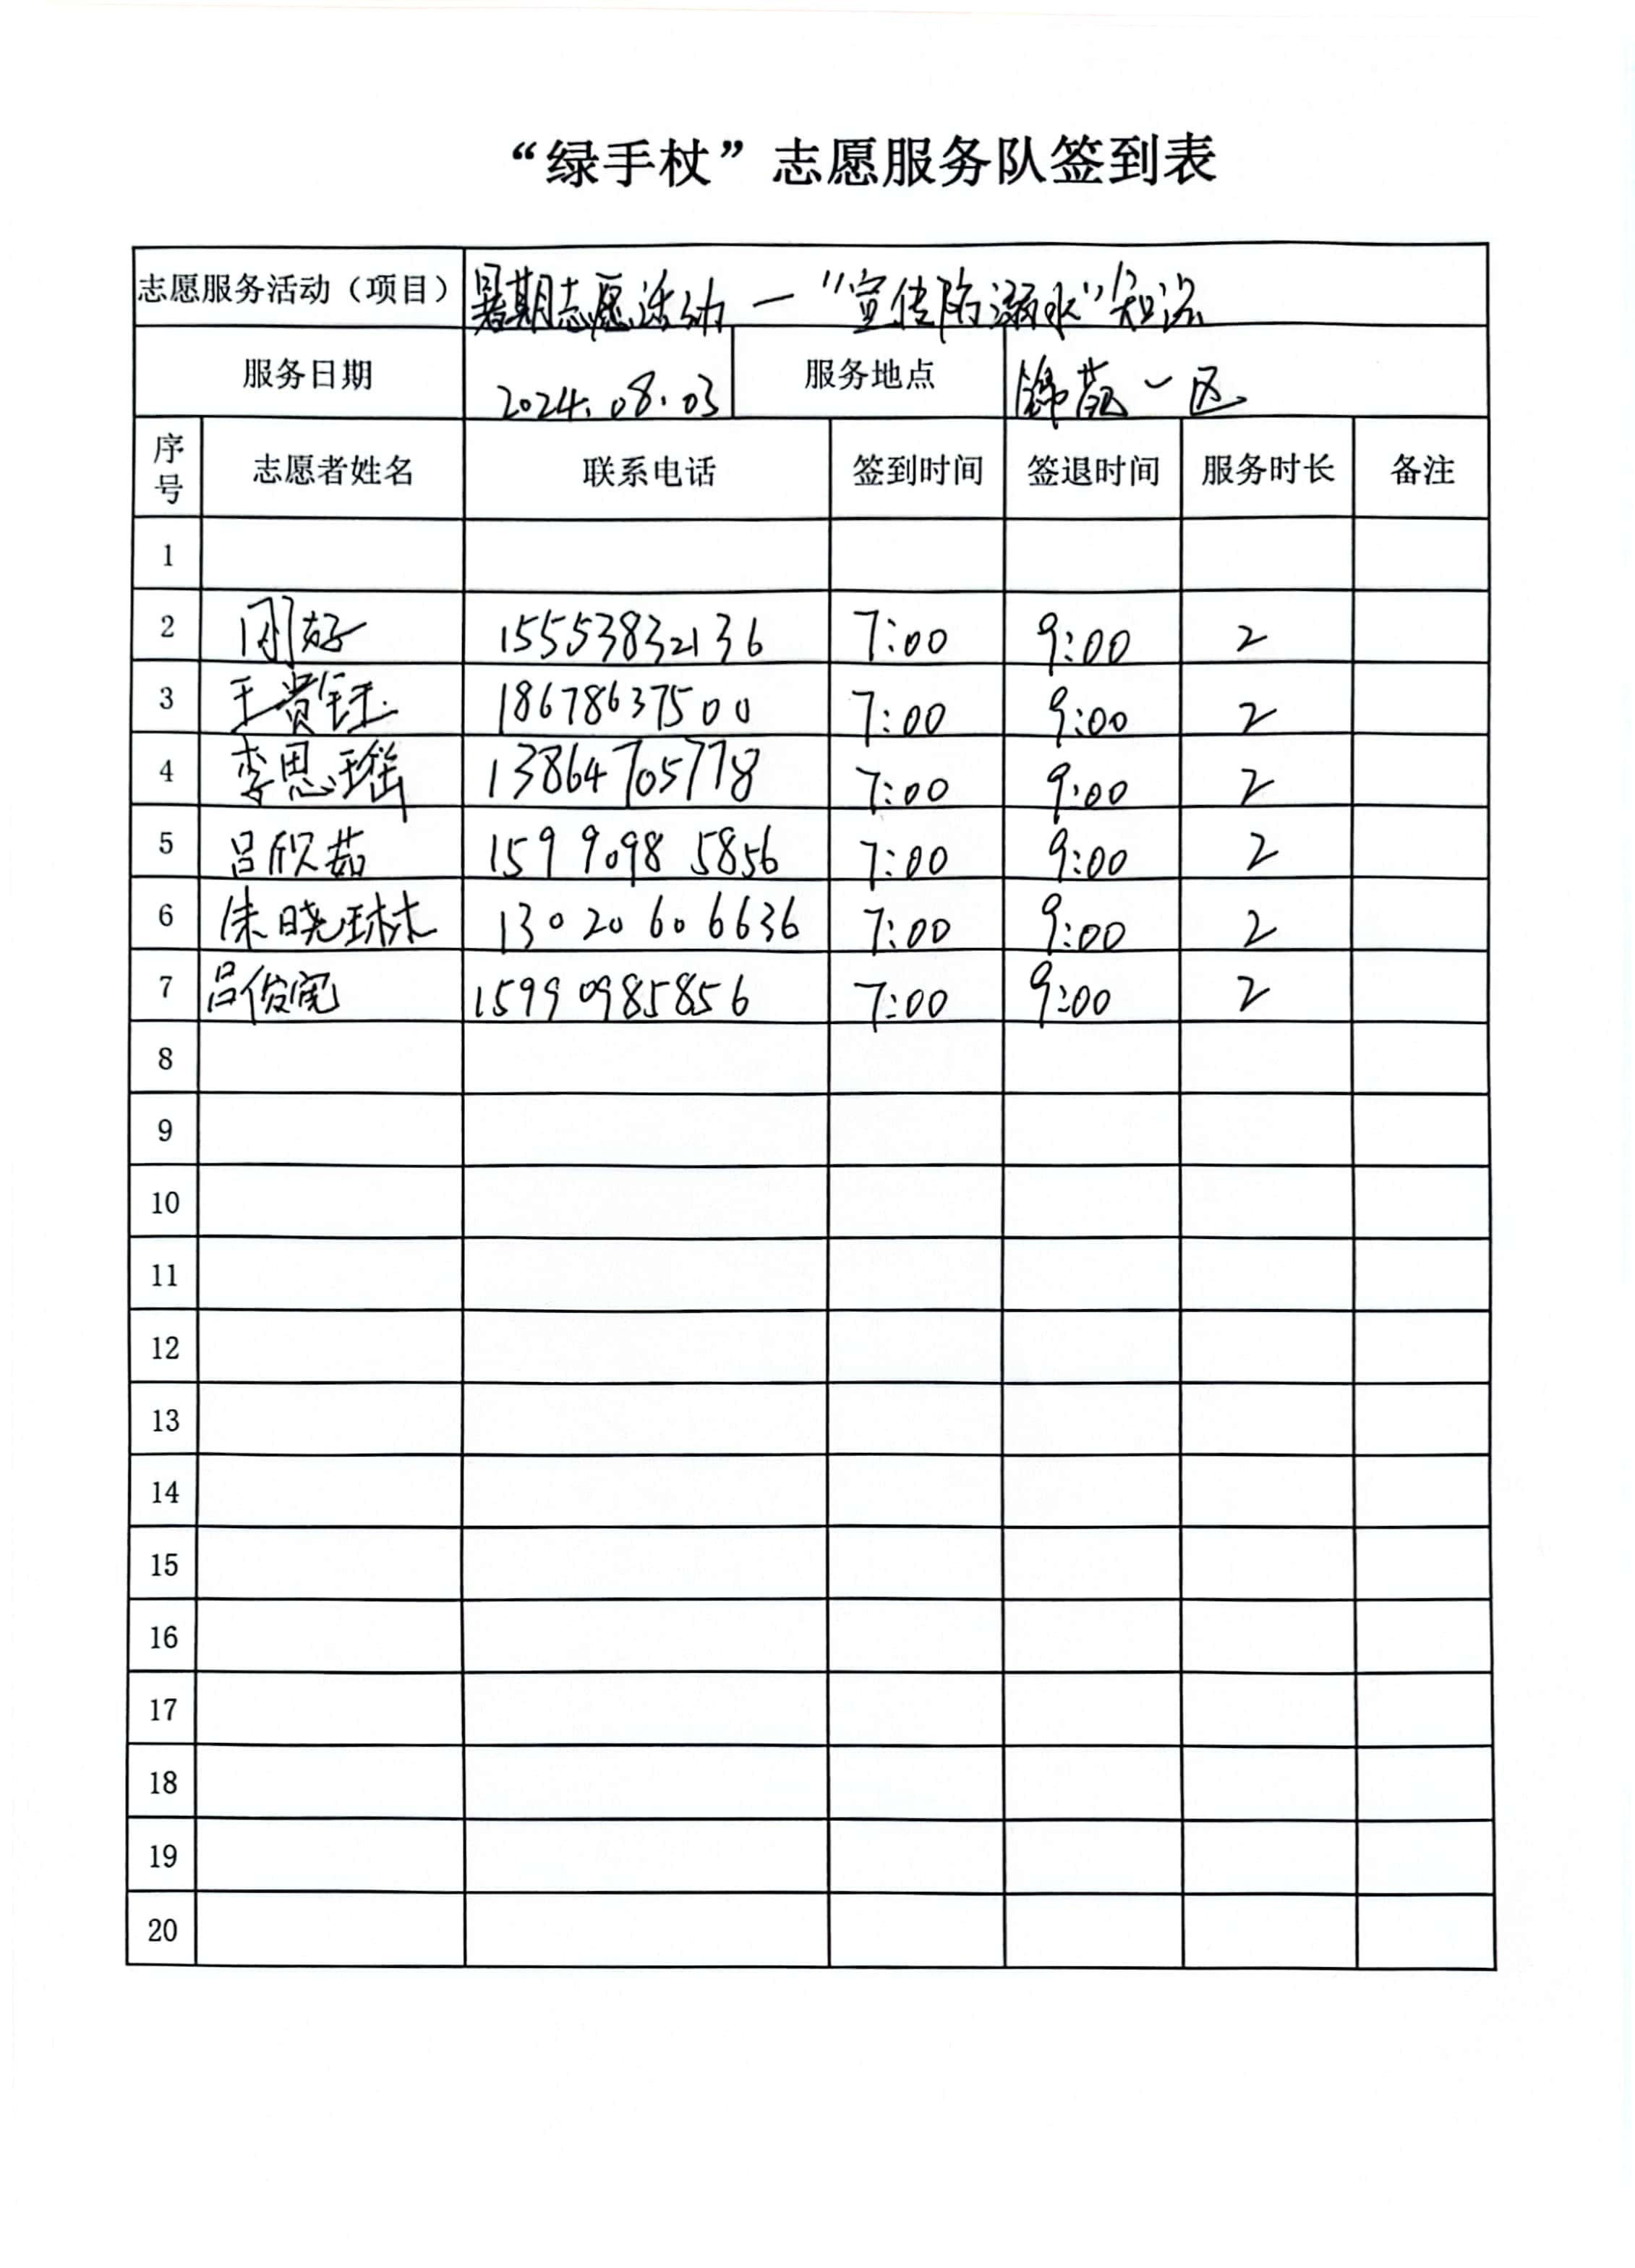 “绿手杖”志愿服务队签到表
志愿服务活动（项目） 暑期志愿活动一“宣传防溺水”知识
服务日期 2024.08.03 服务地点 锦苑一区
序号 志愿者姓名 联系电话 签到时间 签退时间 服务时长 备注
1
2 15553832136 7:00 9:00 2
3 王贵钰 18678637500 7:00 9:00 2
4 李思瑶 13864705778 7:00 9:00 2
5 吕欣茹 159 9098 5856 7:00 9:00 2
6 朱晓琳 130 20 60 6636 7:00 9:00 2
7 吕俊宽 15990985856 7:00 9:00 2
8
9
10
11
12
13
14
15
16
17
18
19
20